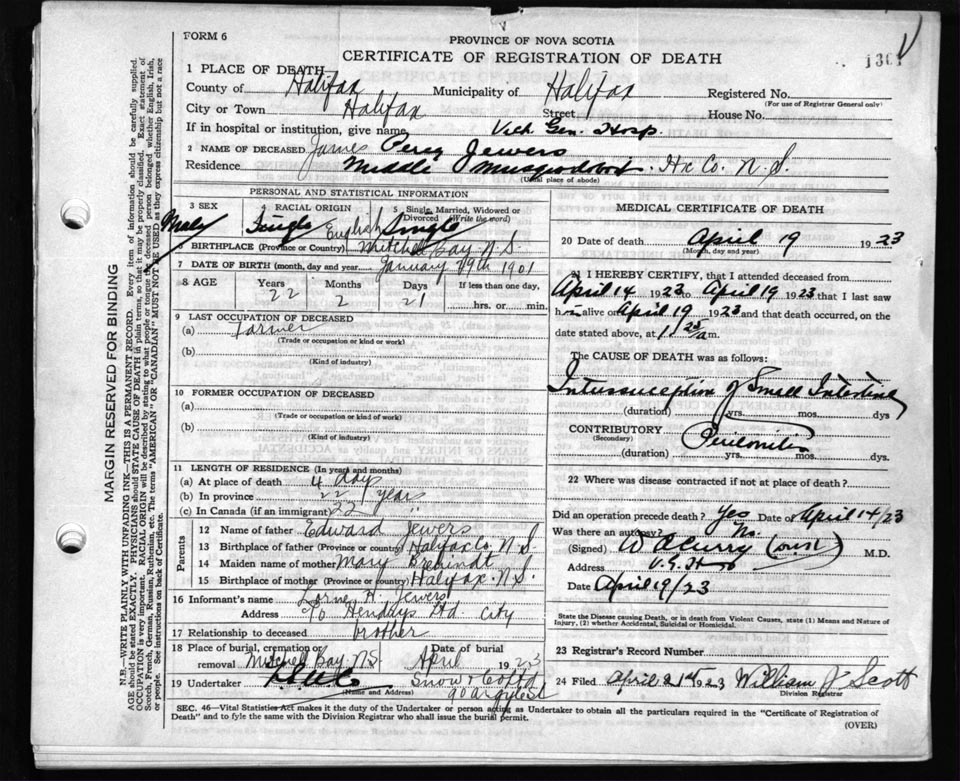 FORM 6
PROVINCE OF NOVA SCOTIA
CERTIFICATE OF REGISTRATION OF DEATH
1 PLACE OF DEATH
County of Halifax Municipality of Halifax Registered No.
(For use of Registrar General only)
City or Town Halifax Street House No.
If in hospital or institution, give name Vict. Gen. Hosp.
2 NAME OF DECEASED James Percy Jewers
Residence Middle Musquodoboit Hx Co. N.S.
(Usual place of abode)
PERSONAL AND STATISTICAL INFORMATION
3 SEX 4 RACIAL ORIGIN 5 Single, Married, Widowed or Divorced (Write the word)
Male Single English Single
6 BIRTHPLACE (Province or Country) Mitchell Bay N.S.
7 DATE OF BIRTH (month, day and year) January 29th 1901
8 AGE Years Months Days If less than one day,
22 2 21 hrs. or min.
9 LAST OCCUPATION OF DECEASED
(a) Farmer
(Trade or occupation or kind of work)
(b)
(Kind of industry)
10 FORMER OCCUPATION OF DECEASED
(a)
(Trade or occupation or kind of work)
(b)
(Kind of industry)
11 LENGTH OF RESIDENCE (In years and months)
(a) At place of death 4 days
(b) In province 22 years
(c) In Canada (if an immigrant) 22 "
Parents
12 Name of father Edward Jewers
13 Birthplace of father (Province or country) Halifax Co. N.S.
14 Maiden name of mother Mary
15 Birthplace of mother (Province or country) Halifax N.S.
16 Informant's name Lorne H. Jewers
Address c/o Hendrys Ltd. City
17 Relationship to deceased brother
18 Place of burial, cremation or removal Mitchell Bay, N.S. Date of burial April 1923
19 Undertaker Snow & Co Ltd
(Name and Address) 90 Argyle St
MEDICAL CERTIFICATE OF DEATH
20 Date of death April 19 1923
(Month, day and year)
21 I HEREBY CERTIFY, that I attended deceased from
April 14 1923 to April 19 1923 that I last saw
him alive on April 19 1923 and that death occurred, on the
date stated above, at 1 25 am.
The CAUSE OF DEATH was as follows:
Intussuception of Small Intestine
(duration) yrs. mos. dys
CONTRIBUTORY Peritonitis
(Secondary)
(duration) yrs. mos. dys.
22 Where was disease contracted if not at place of death?
Did an operation precede death? Yes Date of April 14/23
Was there an autopsy? No.
(Signed) W A Curry M.D.
Address V.G.H
Date April 19/23
State the Disease causing Death, or in death from Violent Causes, state (1) Means and Nature of Injury, (2) whether Accidental, Suicidal or Homicidal.
23 Registrar's Record Number
24 Filed April 21st 1923 William J Scott
Division Registrar
SEC. 46—Vital Statistics Act makes it the duty of the Undertaker or person acting as Undertaker to obtain all the particulars required in the "Certificate of Registration of
Death" and to fyle the same with the Division Registrar who shall issue the burial permit.
(OVER)
MARGIN RESERVED FOR BINDING
N.B.—WRITE PLAINLY WITH UNFADING INK—THIS IS A PERMANENT RECORD. Every item of information should be carefully supplied.
AGE should be stated EXACTLY. PHYSICIANS should STATE CAUSE OF DEATH in plain terms, so that it may be properly classified. Exact statement of
OCCUPATION is very important. RACIAL ORIGIN will be described by stating to what people or tongue the deceased person belonged whether English, Irish,
Scotch, French, German, Russian, Ruthenian, etc. The terms "AMERICAN" or "CANADIAN" MUST NOT BE USED as they express citizenship but not a race
or people. See instructions on back of Certificate.